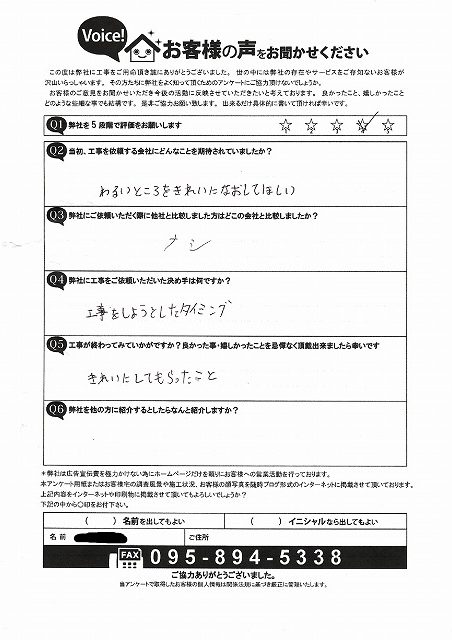 Voice!
お客様の声をお聞かせください
この度は弊社に工事をご用命頂き誠にありがとうございました。 世の中には弊社の存在やサービスをご存知ないお客様が
沢山いらっしゃいます。その方たちに弊社をよく知って頂くためのアンケートにご協力頂けないでしょうか。
お客様のご意見をお聞かせいただき今後の活動に反映させていただきたいと考えております。 良かったこと、嬉しかったこと
どのような些細な事でも結構です。 是非ご協力お願い致します。 出来るだけ具体的に書いて頂ければ幸いです。
Q1 弊社を5段階で評価をお願いします ☆ ☆ ☆ ☆ ☆
Q2 当初、工事を依頼する会社にどんなことを期待されていましたか?
わるいところをきれいになおしてほしい
Q3 弊社にご依頼いただく際に他社と比較しました方はどこの会社と比較しましたか?
ナシ
Q4 弊社に工事をご依頼いただいた決め手は何ですか?
工事をしようとしたタイミング
Q5 工事が終わってみていかがですか?良かった事・嬉しかったことを忌憚なく頂戴出来ましたら幸いです
きれいにしてもらったこと
Q6 弊社を他の方に紹介するとしたらなんと紹介しますか?
*弊社は広告宣伝費を極力かけない為にホームページだけを頼りにお客様への営業活動を行っております。
本アンケート用紙またはお客様宅の調査風景や施工状況、お客様の顔写真を随時ブログ形式のインターネットに掲載させて頂いております。
上記内容をインターネットや印刷物に掲載させて頂いてもよろしいでしょうか?
下記の中から○印をお付下さい。
( ) 名前を出してもよい ( ) イニシャルなら出してもよい
名前 ご住所
FAX 095-894-5338
ご協力ありがとうございました。
当アンケートで取得したお客様の個人情報は関係法規に基づき厳正に管理いたします。